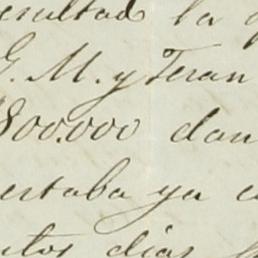 resultad la
G. M. y Teran
$800.000 dan
estaba ya
dias